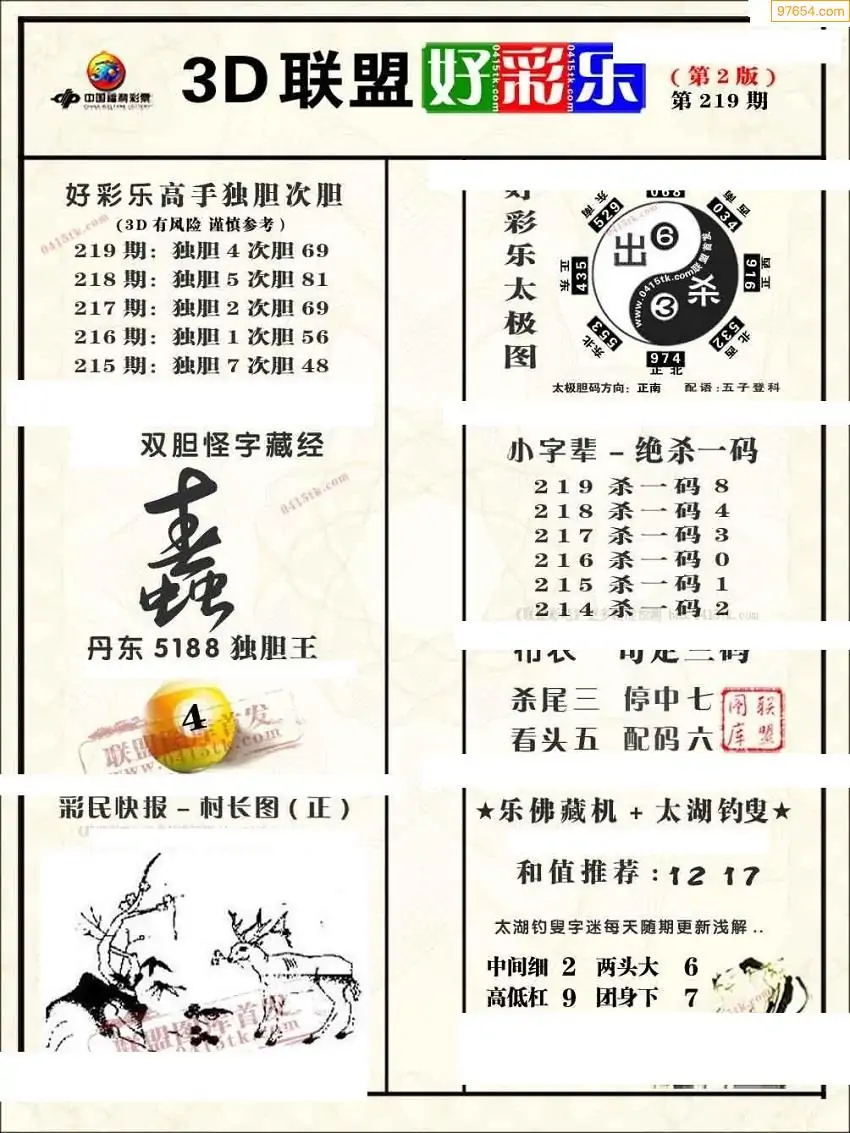 97654.com
3D联盟好彩乐
(第2版)
第219期
中国福利彩票
CHINA WELFARE LOTTERY
好彩乐高手独胆次胆
(3D有风险 谨慎参考)
219期: 独胆4次胆69
218期: 独胆5次胆81
217期: 独胆2次胆69
216期: 独胆1次胆56
215期: 独胆7次胆48
0415tk.com
双胆怪字藏经
0415tk.com
丹东5188独胆王
4
联盟图库首发
www.0415tk.com
彩民快报-村长图(正)
联盟图库首发
www.0415tk.com
好彩乐太极图
068
东南 529
西南 034
正东 435
正西 916
东北 553
西北 532
974
正北
出 6
杀 3
www.0415tk.com联盟首发
太极胆码方向: 正南 配语:五子登科
小字辈-绝杀一码
219杀一码8
218杀一码4
217杀一码3
216杀一码0
215杀一码1
214杀一码2
杀尾三 停中七
看头五 配码六
联盟图库
★乐佛藏机+太湖钓叟★
和值推荐:12 17
太湖钓叟字迷每天随期更新浅解..
中间细 2 两头大 6
高低杠 9 团身下 7
0415tk.com